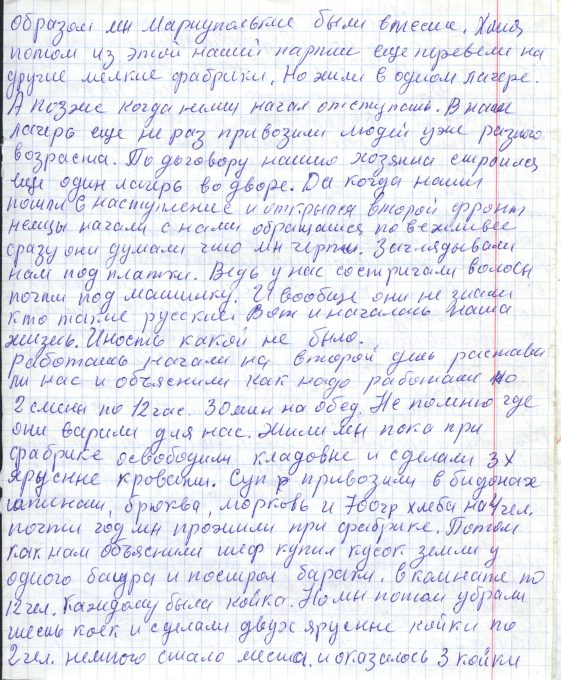 образом мы Мариупольские были вместе. Хотя
потом из этой нашей партии еще перевели на
другие мелкие фабрики. Но жили в одном лагере.
А позже когда немцы начал отступать. В наш
лагерь еще не раз привозили людей уже разного
возраста. По договору нашего хозяина строился
еще один лагерь во дворе. Да когда наши
пошли в наступление и открылся второй фронт
немцы начали с нами обращатся по вежливее
сразу они думали что мы черти. Заглядывали
нам под платки. Ведь у нас состригали волосы
почти под машинку. И вообще они не знали
кто такие русские. Вот и началась наша
жизнь. Иность какой не было.
работать начали на второй день расстави
ли нас и объяснили как надо работали по
2 смены по 12 час. 30 мин на обед. Не помню где
они варили для нас. Жили мы пока при
фабрике освободили кладовые и сделали 3х
ярусные кровати. Суп привозили в бидонах
шпинат, брюква, морковь и 700гр хлеба на 4 чел.
почти год мы прожили при фабрике. Потом
как нам объяснили шеф купил кусок земли у
одного бауэра и построил бараки. в комнате по
12 чел. Каждому была койка. Но мы потом убрали
шесть коек и сделали двух ярусные койки по
2 чел. немного стало места. и оказалось 3 койки